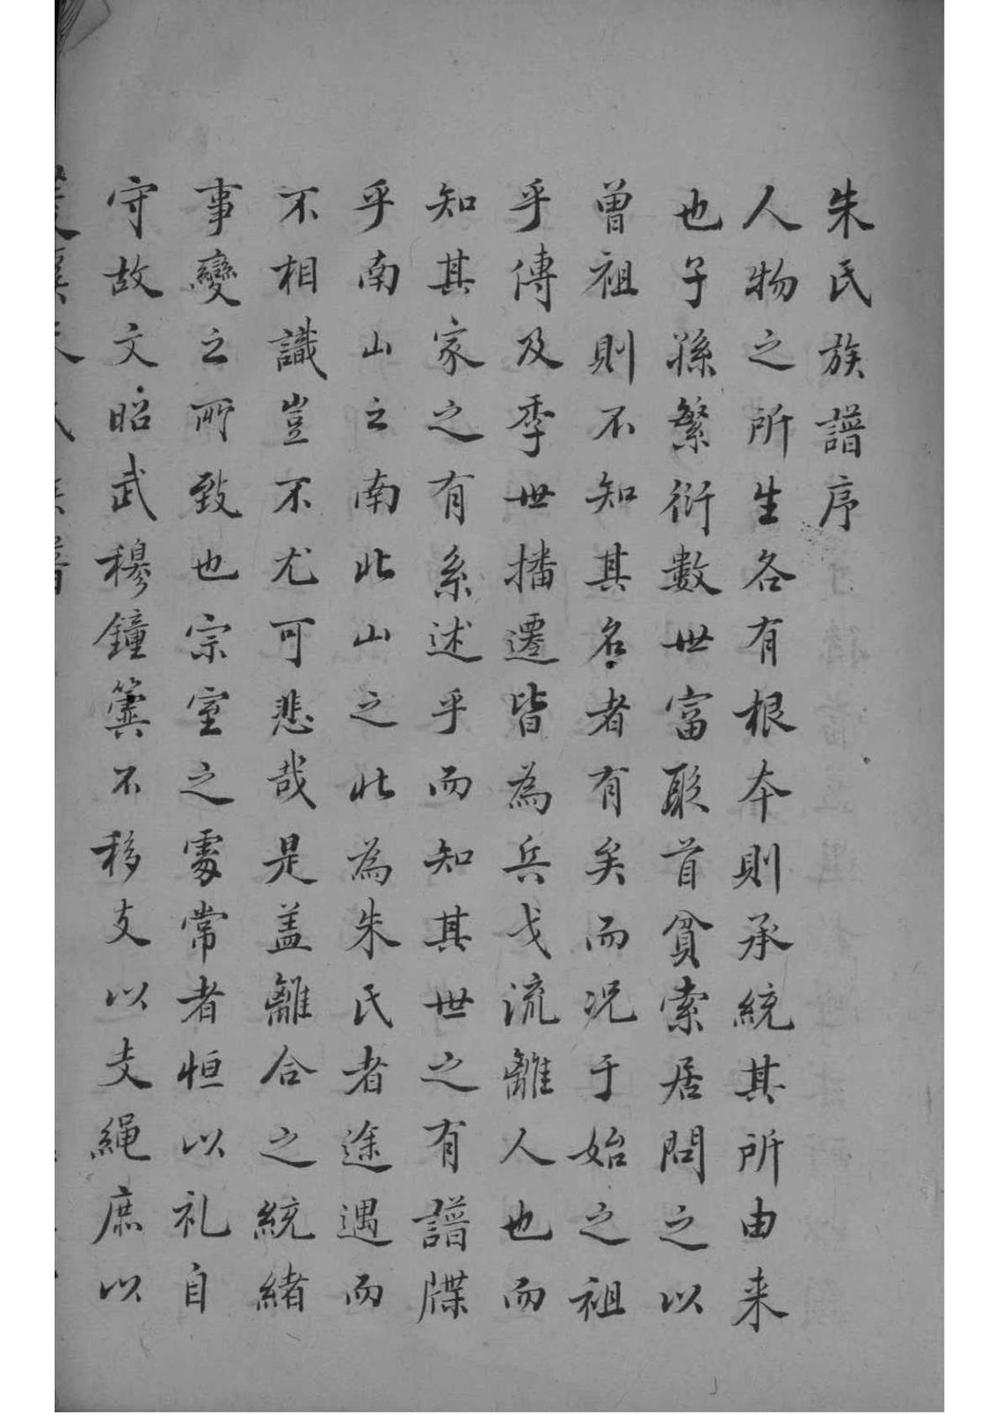 朱氏族譜序
人物之所生各有根夲則承統其所由来
也子孫繁衍數世富聚首貧索居問之以
曽祖則不知其名者有矣而况于始之祖
乎傳及季世播遷皆為兵戈流離人也而
知其家之有系述乎而知其世之有譜牒
乎南山之南北山之北為朱氏者途遇而
不相識豈不尤可悲哉是盖離合之統緒
事變之所致也宗室之處常者恒以礼自
守故文昭武穆鐘簴不移支以支繩庶以